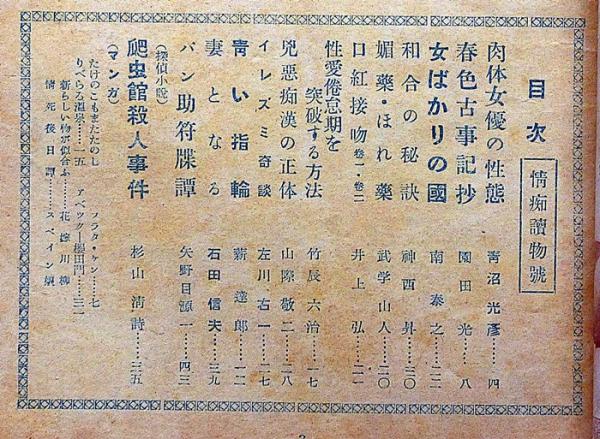 目次
情痴讀物號
肉体女優の性態 青沼光彦……四
春色古事記抄 園田光……八
女ばかりの國 南泰之……二二
和合の秘訣 神西昇……三〇
媚藥・ほれ藥 武学山人……二〇
口紅接吻 卷一・卷二 井上弘……二一
性愛倦怠期を
突破する方法 竹辰六治……一七
兇悪痴漢の正体 山際敬二……二八
イレズミ奇談 左川右一……一七
青い指輪 薪達郎……一二
妻となる 石田信夫……三九
パン助符牒譚 矢野目源一……四三
(探偵小説)
爬虫館殺人事件 杉山清詩……三五
(マンガ)
たけのこもまたたのし フラタ・ケン……七
りべらる温泉……一五 アベック桜田門……三一
新らしい物が似合ふ……花 川柳
情死後日譚……スペイン